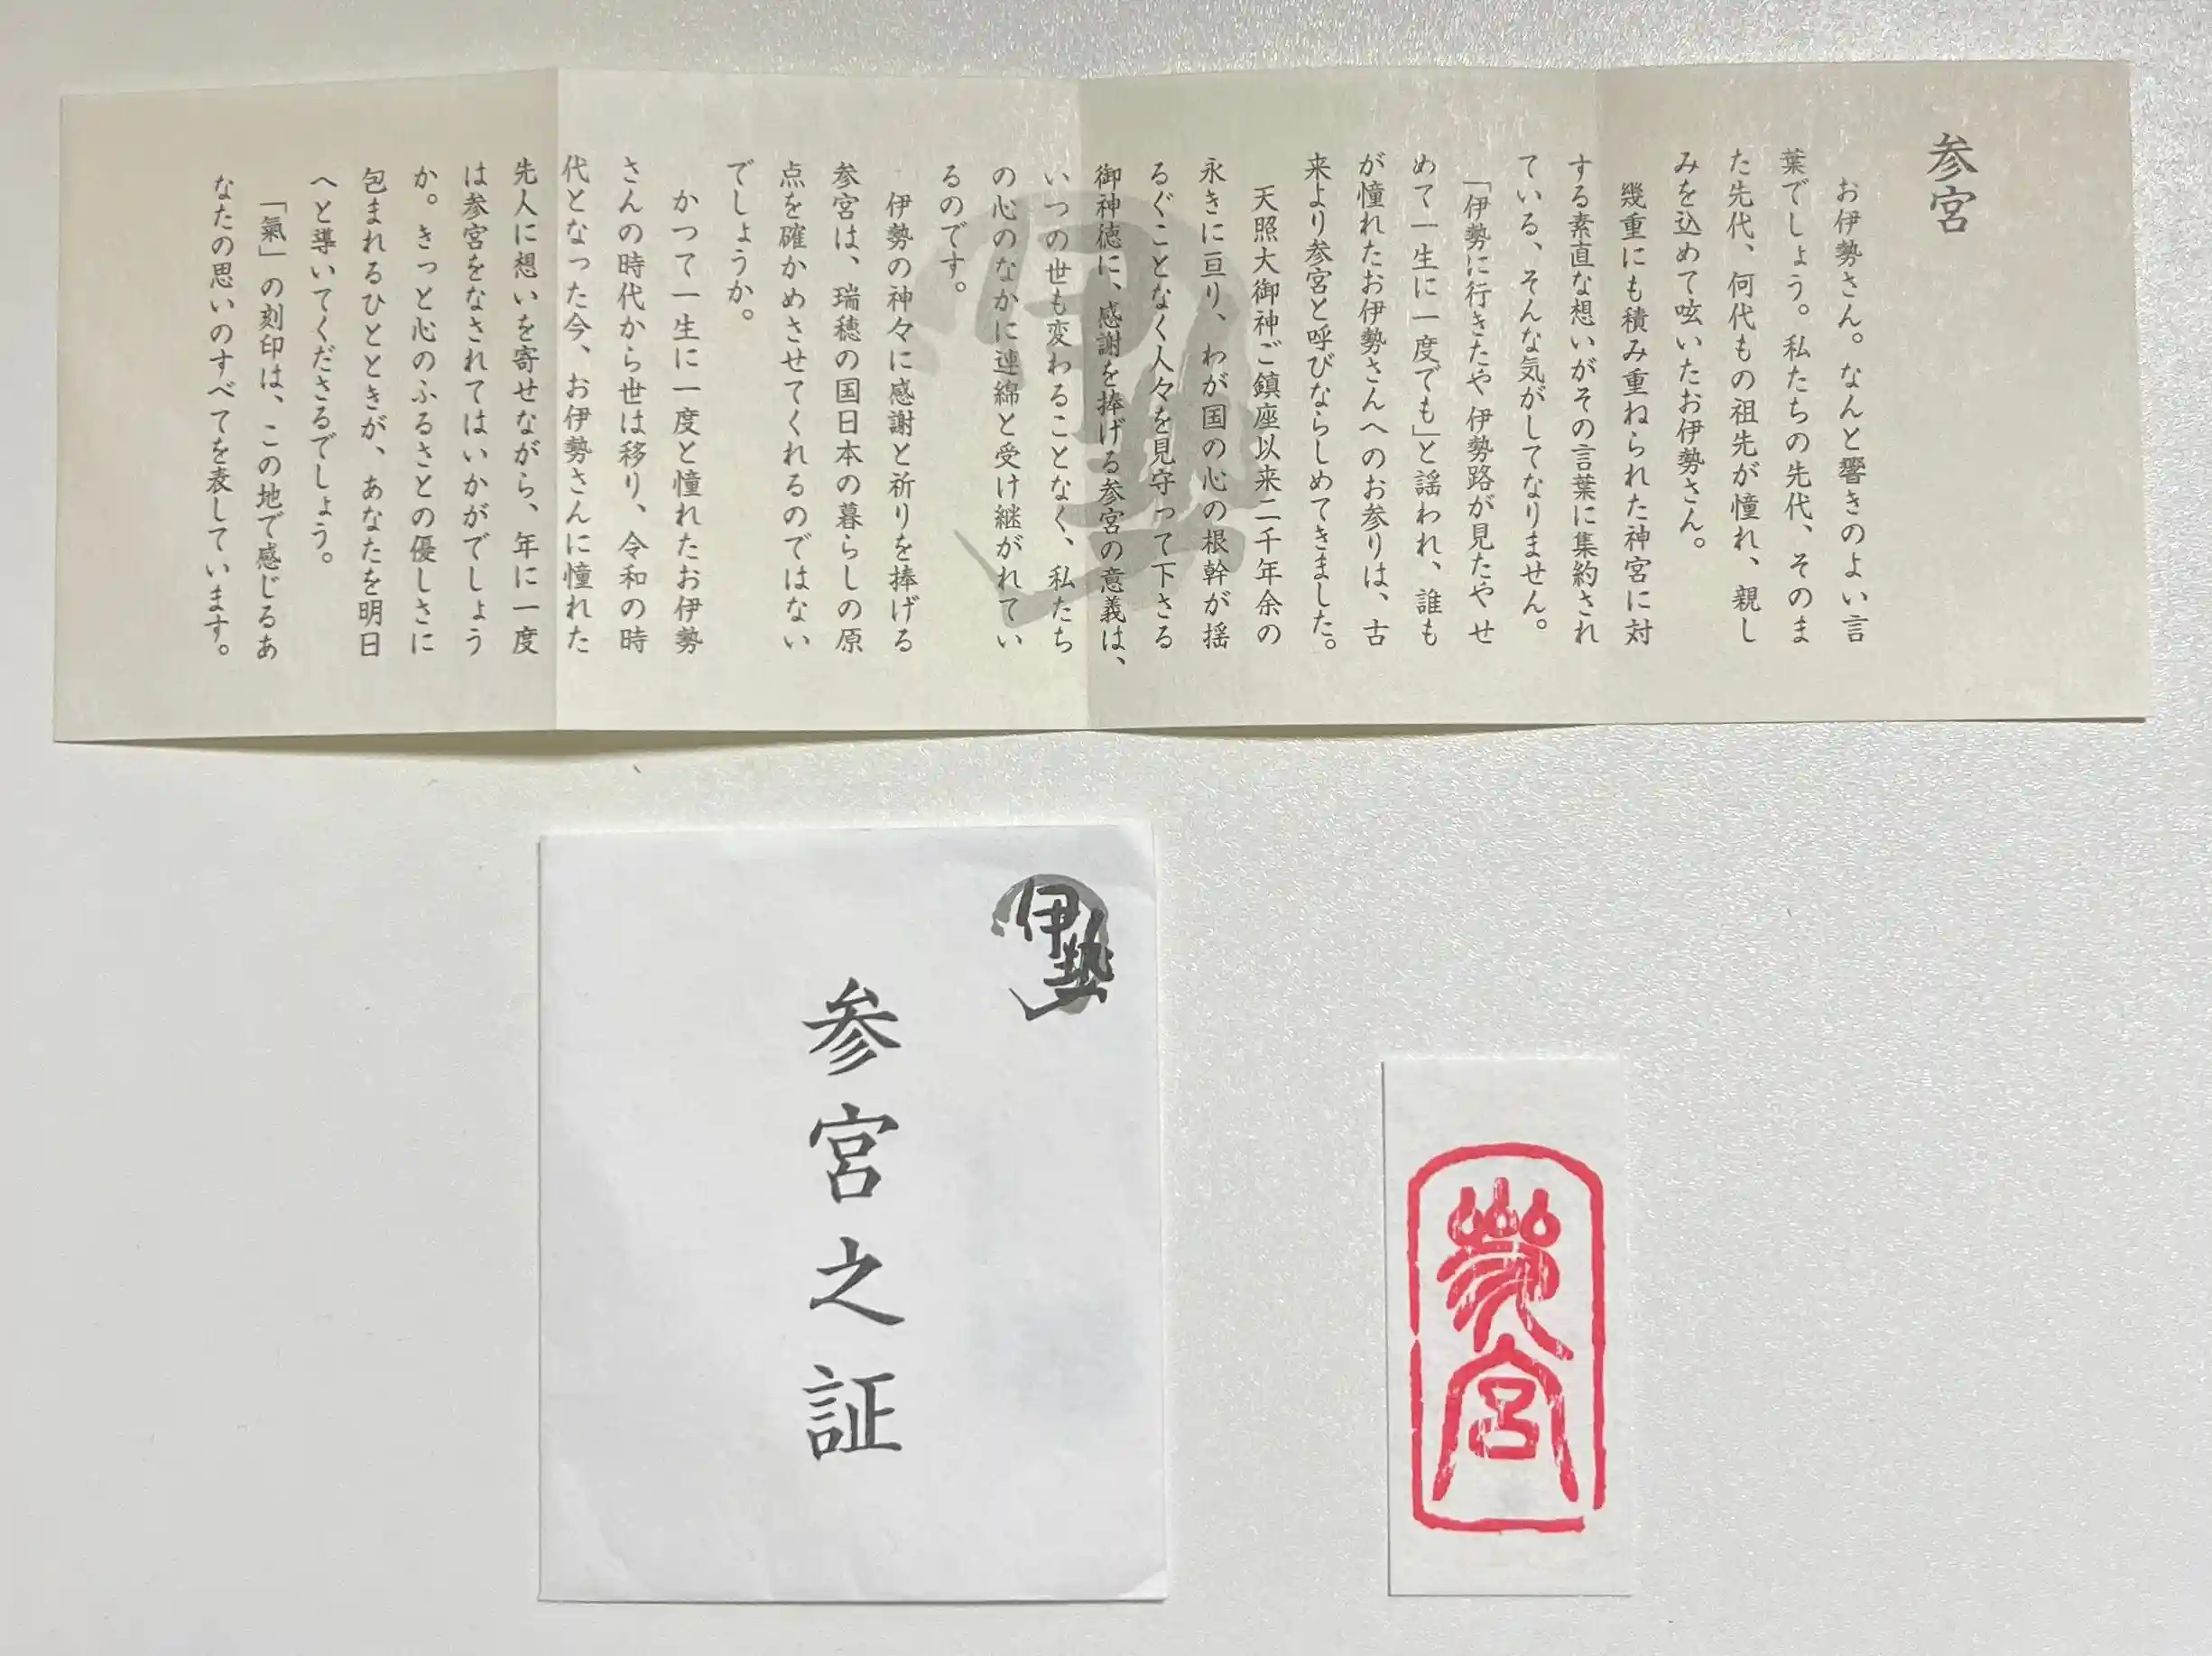 参宮
お伊勢さん。なんと響きのよい言
葉でしょう。私たちの先代、そのま
た先代、何代もの祖先が憧れ、親し
みを込めて呟いたお伊勢さん。
幾重にも積み重ねられた神宮に対
する素直な想いがその言葉に集約され
ている、そんな気がしてなりません。
「伊勢に行きたや 伊勢路が見たや せ
めて一生に一度でも」と謡われ、誰も
が憧れたお伊勢さんへのお参りは、古
来より参宮と呼びならしめてきました。
天照大御神ご鎮座以来二千年余の
永きに亘り、わが国の心の根幹が揺
るぐことなく人々を見守って下さる
御神徳に、感謝を捧げる参宮の意義は、
いつの世も変わることなく、私たち
の心のなかに連綿と受け継がれてい
るのです。
伊勢の神々に感謝と祈りを捧げる
参宮は、瑞穂の国日本の暮らしの原
点を確かめさせてくれるのではない
でしょうか。
かつて一生に一度と憧れたお伊勢
さんの時代から世は移り、令和の時
代となった今、お伊勢さんに憧れた
先人に想いを寄せながら、年に一度
は参宮をなされてはいかがでしょう
か。きっと心のふるさとの優しさに
包まれるひとときが、あなたを明日
へと導いてくださるでしょう。
「氣」の刻印は、この地で感じるあ
なたの思いのすべてを表しています。
伊勢
伊勢
参宮之証
参宮